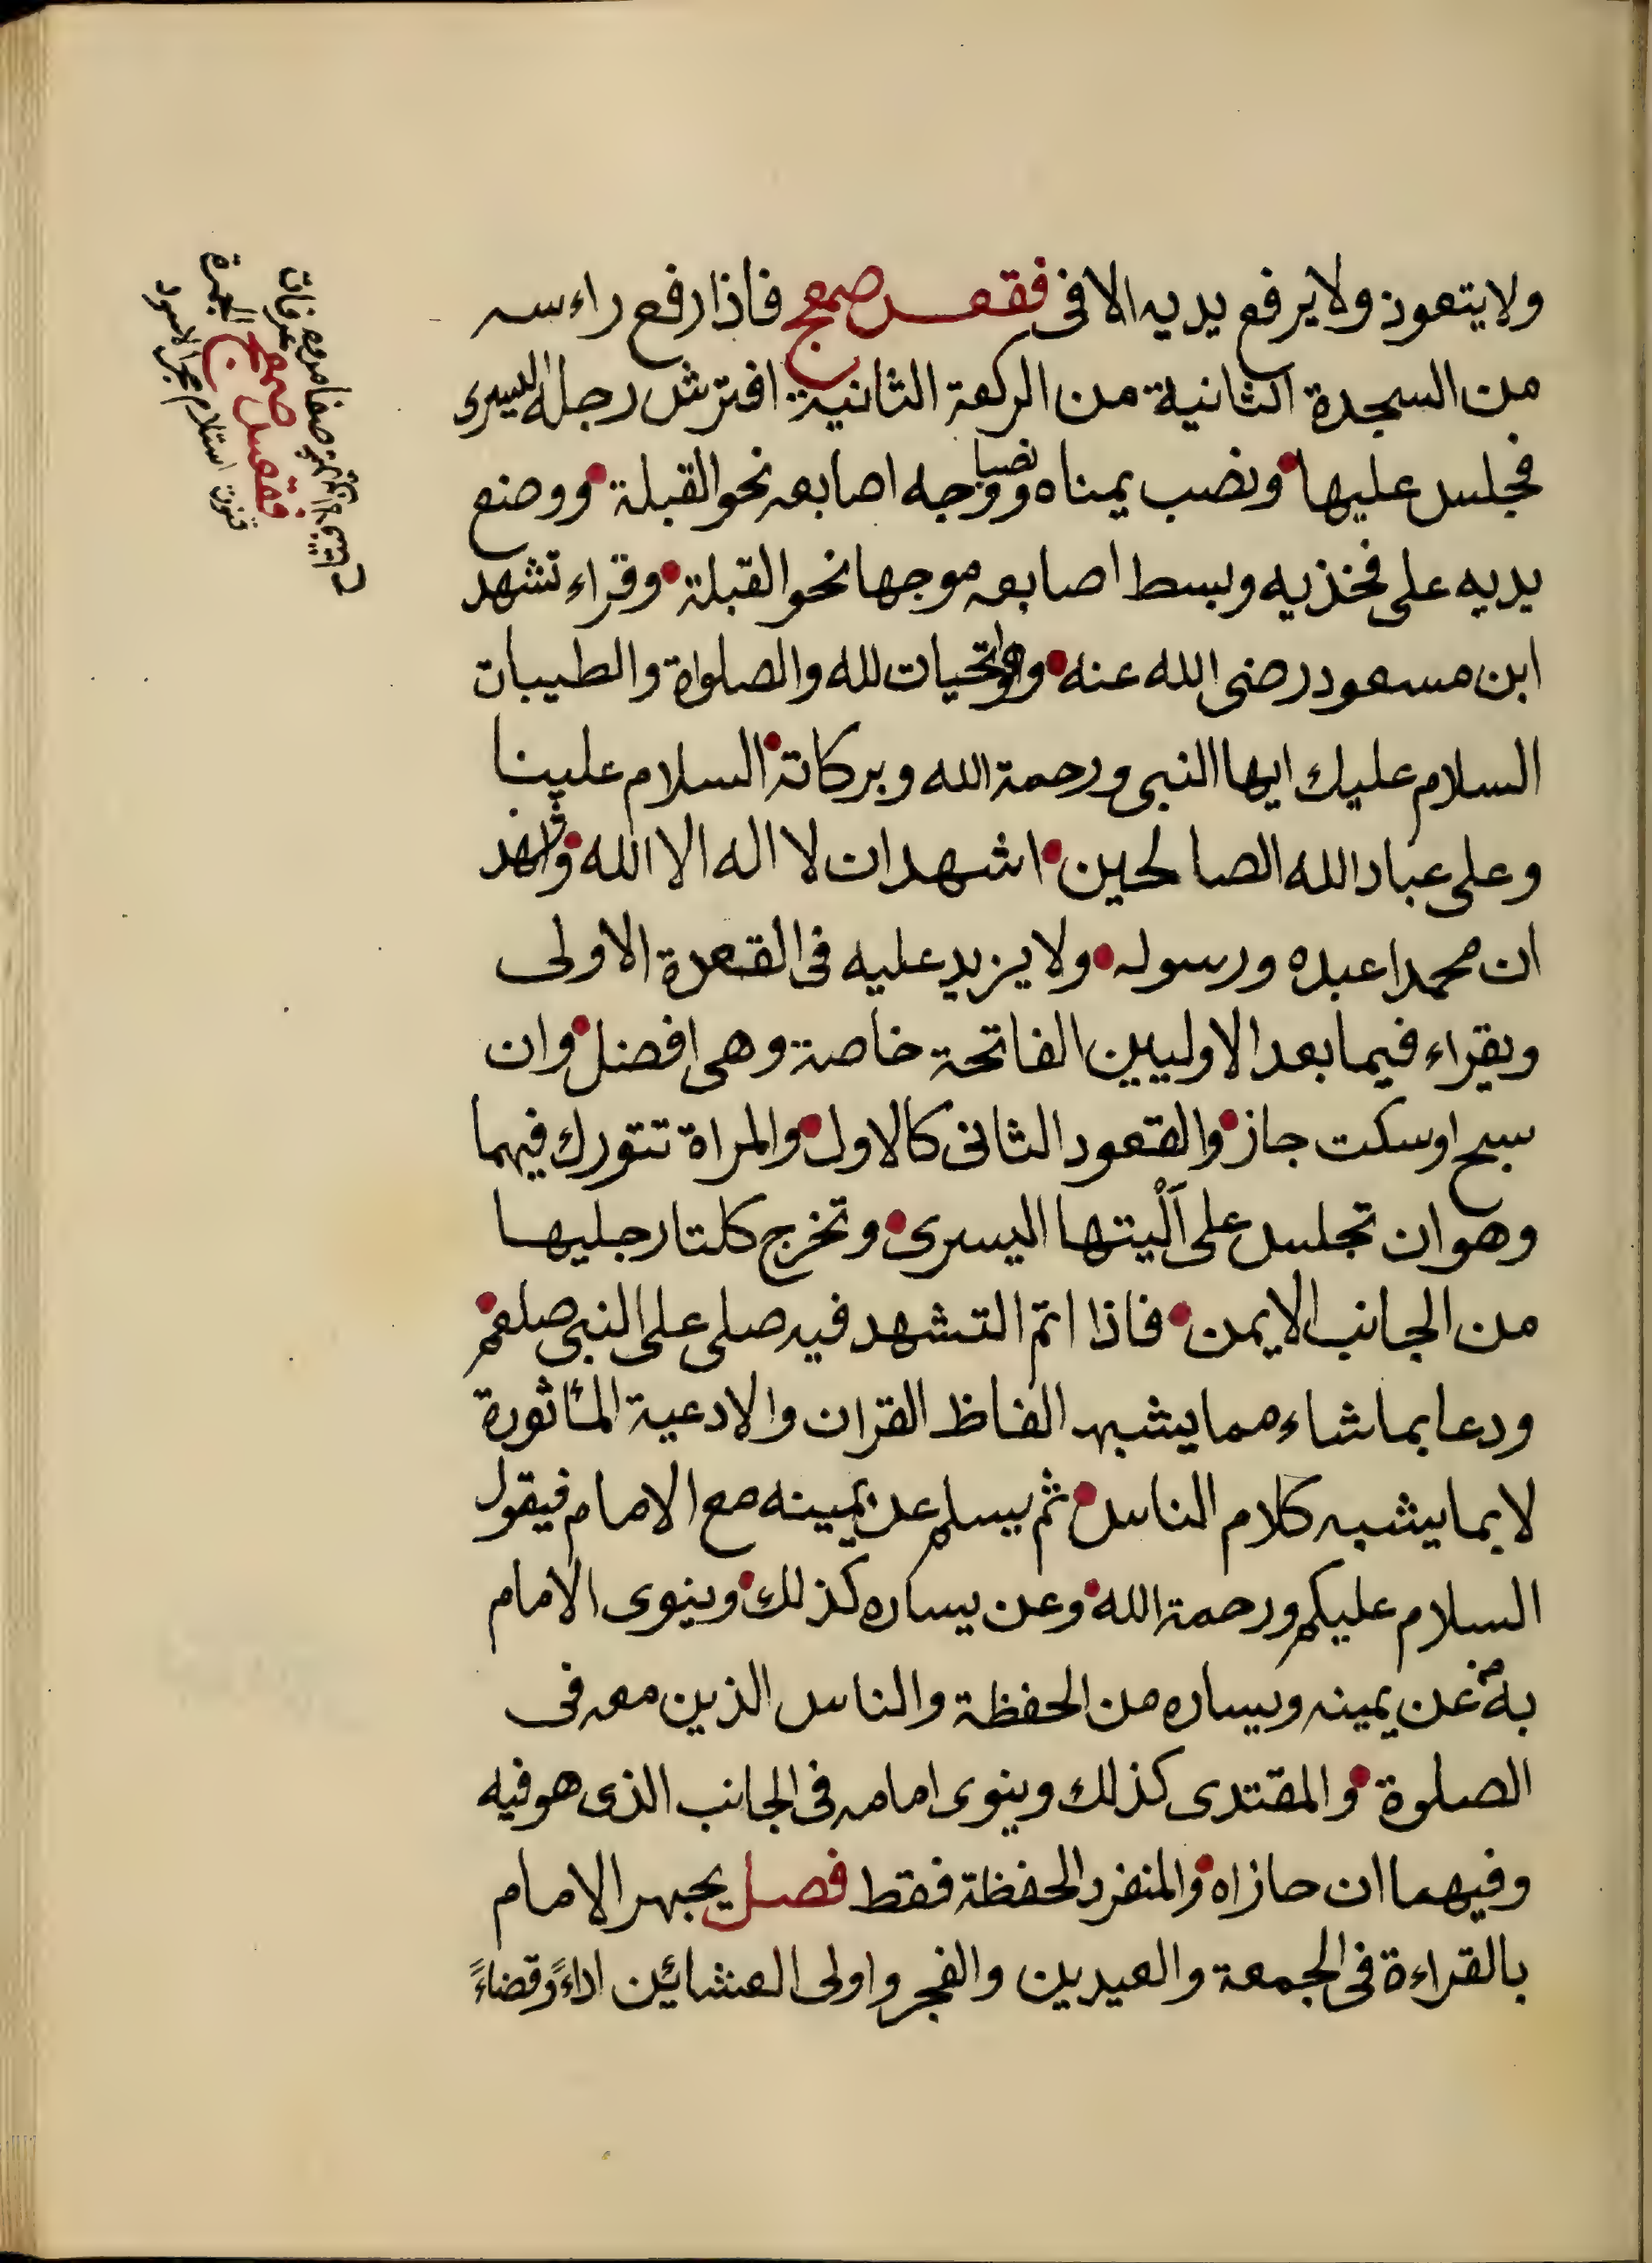 ولا يتعوذ ولا يرفع يديه الا فى فقعس صمعج فاذا رفع راءسه
من السجدة الثانية من الركعة الثانية افترش رجله اليسرى
فجلس عليها ونصب يمناه نصبا ووجه اصابعه نحو القبلة ووضع
يديه على فخذيه وبسط اصابعه موجها نحو القبلة وقراء تشهد
ابن مسعود رضى الله عنه وهو التحيات لله والصلواة والطيبات
السلام عليك ايها النبى ورحمة الله وبركاتة السلام علينا
وعلى عباد الله الصالحين اشهد ان لا اله الا الله واشهد
ان محمدا عبده ورسوله ولا يزيد عليه فى القعدة الاولى
ويقراء فيما بعد الاوليين الفاتحة خاصة وهى افضل وان
سبح او سكت جاز والقعود الثانى كالاول والمراة تتورك فيهما
وهو ان تجلس على اَلْيتها اليسرى وتخرج كلتا رجليها
من الجانب الايمن فاذا اتمّ التشهد فيه صلى على النبى صلعم
ودعا بما شاء مما يشبه الفاظ القران والادعية المأثورة
لا بما يشبه كلام الناس ثم يسلم عن يمينه مع الامام فيقول
السلام عليكم ورحمة الله وعن يساره كذلك وينوى الامام
به من عن يمينه ويساره من الحفظة والناس الذين معه فى
الصلوة والمقتدى كذلك وينوى امامه فى الجانب الذى هو فيه
وفيهما ان حازاه والمنفرد الحفظة فقط فصل يجهر الامام
بالقراءة فى الجمعة والعيدين والفجر واولى العشائين اداءً وقضاءً
صفا مروه عرفات
فقعس صمعج الجمرة
قنوت استلام حجر الاسود